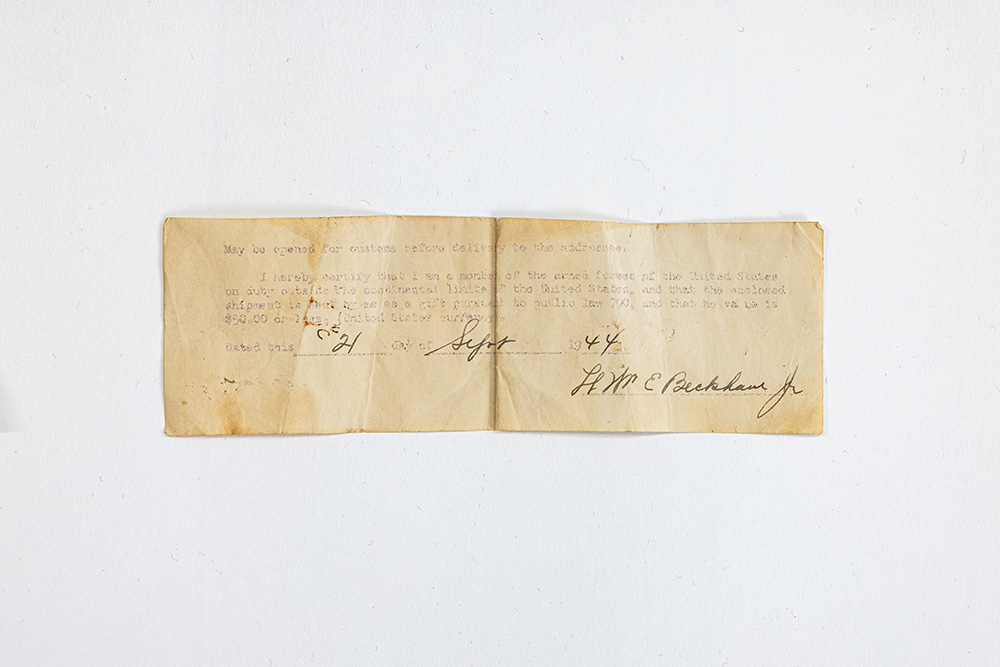 May be opened for customs before delivery to the addressee.
I hereby certify that I am a member of the armed forces of the United States
on duty outside the continental limits of the United States, and that the enclosed
shipment is sent by me as a gift pursuant to public law 790, and that he value is
$50.00 or less. (United States currency).
Dated this 21 day of Sept 1944
Lt Wm E Beckham Jr